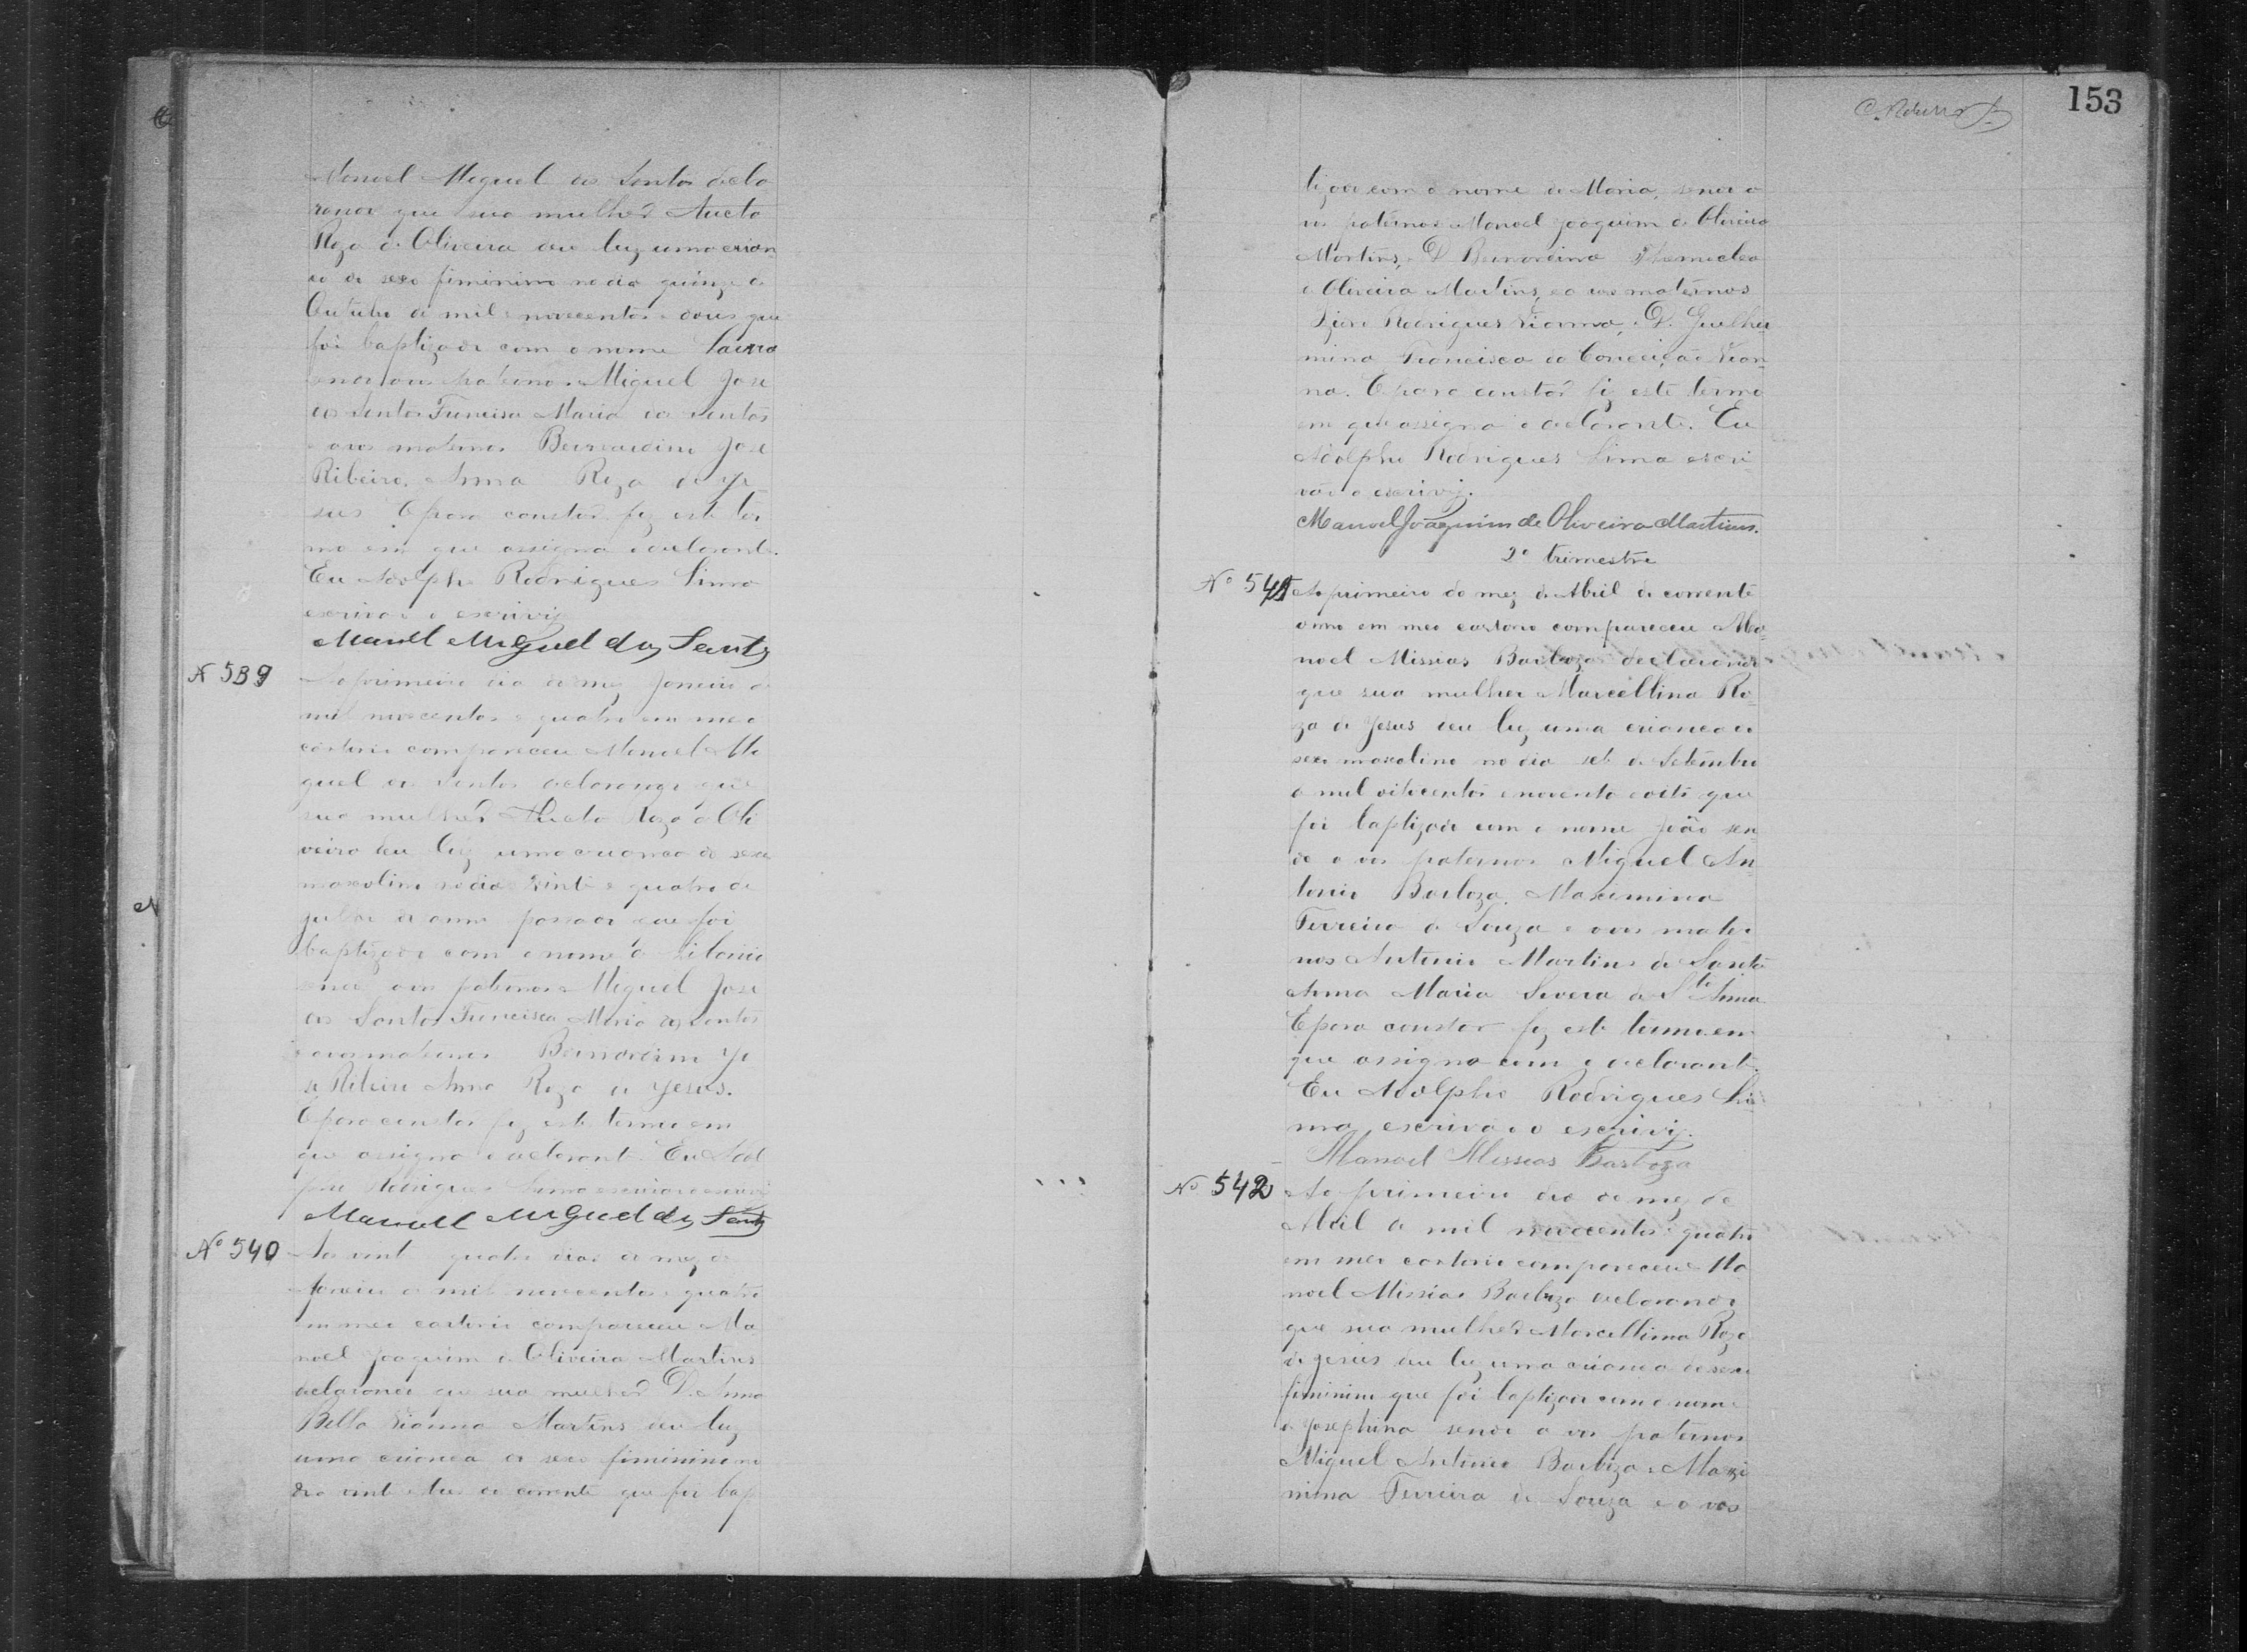 Manoel Miguel dos Santos decla
rando que sua mulher Aucta
Roza de Oliveira deu luz uma crian
ça do sexo feminino no dia quinze de
Outubro de mil novecentos e dous que
foi baptizada com o nome Laura
sendo avos paternos Miguel José
dos Santos Francisca Maria dos Santos
e avos maternos Bernardino José
Ribeiro, Anna Roza de Je
sus. E para constar fiz este ter
mo em que assigna o declarante.
Eu Adolpho Rodrigues Lima
escrivão o escrivij
Manoel Miguel dos Santos
N 539
Ao primeiro dia do mez Janeiro de
mil novecentos e quatro em meo
cartorio compareceu Manoel Mi
guel dos Santos declarando que
sua mulher Aucta Roza de Oli
veira deu luz uma creança do sexo
masculino no dia vinte e quatro de
julho do anno passado que foi
baptizado com o nome de
sendo avos paternos Miguel José
dos Santos Francisca Maria dos Santos
e avos maternos Bernardino Jo
se Ribeiro Anna Roza de Jesus.
E para constar fiz este termo em
que assigna o declarante. Eu Adol
pho Rodrigues Lima escrivão o escrivij
Manoel Miguel dos Santos
Nº 540
Aos vinte quatro dias do mez de
Janeiro de mil novecentos e quatro
em meo cartorio compareceu Ma
noel Joaquim de Oliveira Martins
declarando que sua mulher D. Anna
Bella Vianna Martins deu luz
uma creança do sexo feminino no
dia vinte e tres do corrente que foi bap
153
tizada com o nome de Maria, sendo a
vos paternos Manoel Joaquim de Oliveira
Martins, D Bernardina
de Oliveira Martins, e a vos maternos
Rodrigues Vianna, D. Guilher
mina Francisca da Conceição Vian
na. E para constar fiz este termo
em que assigna o declarante. Eu
Adolpho Rodrigues Lima escri
vão o escrivij.
Manoel Joaquim de Oliveira Martins.
2º trimestre
Nº 541
Ao primeiro do mez de Abril do corrente
anno em meo cartorio compareceu Ma
noel Missias Barboza declarando
que sua mulher Marcellina Ro
za de Jesus deu luz uma creança do
sexo masculino no dia sete de Setembro
de mil oitocentos e noventa e oito que
foi baptizado com o nome João sen
do a vos paternos Miguel An
tonio Barboza, Maximina
Ferreira de Souza e avos mater
nos Antonio Martins de Santa
Anna Maria Severa de Sta Anna
E para constar fiz este termo em
que assigna com o declarante.
Eu Adolpho Rodrigues Li
ma escrivão o escrivij.
Manoel Messias Barboza
Nº 542
Ao primeiro dia do mez de
Abril de mil novecentos e quatro
em meo cartorio compareceu Ma
noel Missias Barboza declarando
que sua mulher Marcellina Roza
de Jesus deu luz uma creança do sexo
feminino que foi baptizada com o nome
de Josephina sendo a vos paternos
Miguel Antonio Barboza e Maxi
mina Ferreira de Souza e a vos